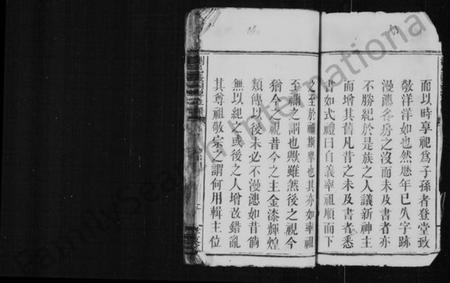 而以時享祀爲子孫者登堂致
敬洋洋如也然歴年已久字跡
漫漶各房之沒而未及書者亦
不勝紀於是族之人議新神主
而增其舊凡昔之未及書者悉
書如式禮曰自義率祖順而下
之至於禰 其亦如率祖
至禰之謂也歟雖然後之視今
猶今之視昔今之主金漆輝煌
類傳以後未必不漫漶如昔倘
無以紀之或後之人增改錯亂
其尊祖敬宗之謂何用輯主位